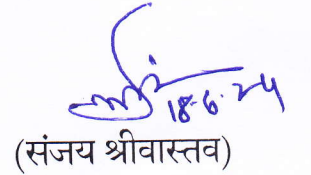 18-6-24
(संजय श्रीवास्तव)